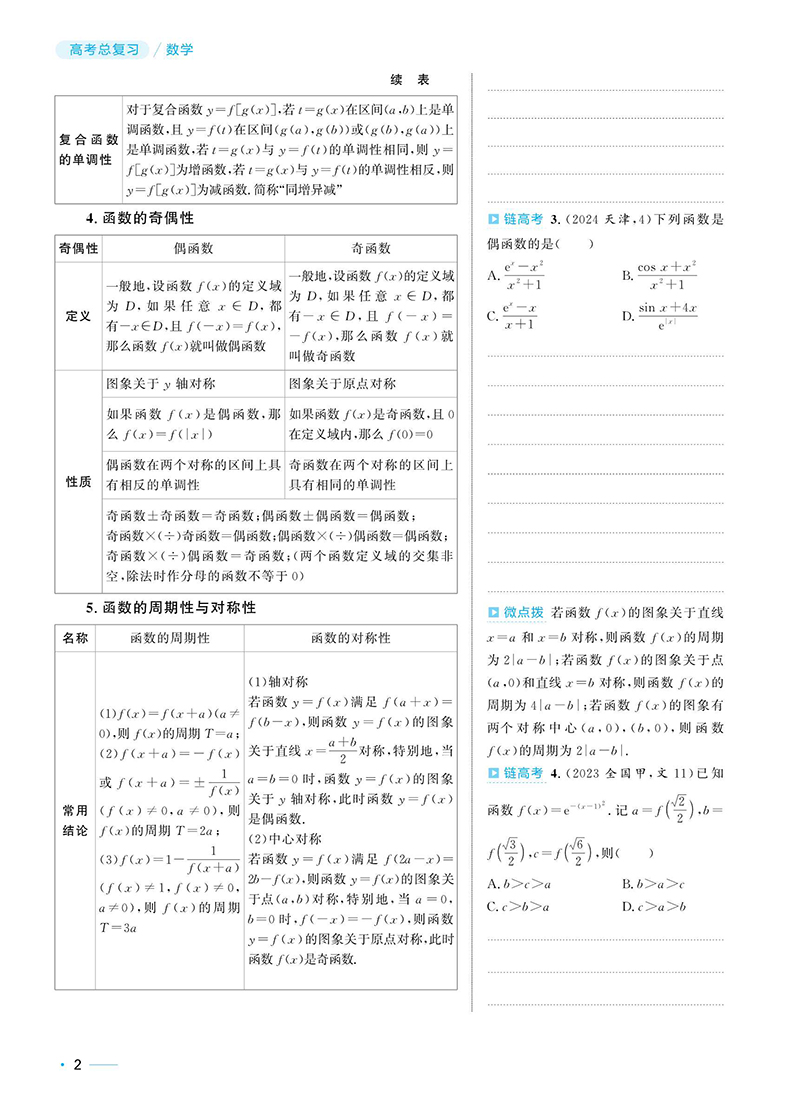 高考总复习 / 数学
续 表
复合函数
的单调性
对于复合函数 y=f[g(x)],若 t=g(x)在区间(a,b)上是单
调函数,且 y=f(t)在区间(g(a),g(b))或(g(b),g(a))上
是单调函数,若 t=g(x)与 y=f(t)的单调性相同,则 y=
f[g(x)]为增函数,若 t=g(x)与 y=f(t)的单调性相反,则
y=f[g(x)]为减函数.简称“同增异减”
4. 函数的奇偶性
奇偶性 偶函数 奇函数
定义
一般地,设函数 f(x)的定义域
为 D,如果任意 x∈D,都
有−x∈D,且 f(−x)=f(x),
那么函数 f(x)就叫做偶函数
一般地,设函数 f(x)的定义域
为 D,如果任意 x∈D,都
有−x∈D,且 f(−x)=
−f(x),那么函数 f(x)就
叫做奇函数
性质
图象关于 y 轴对称 图象关于原点对称
如果函数 f(x)是偶函数,那
么 f(x)=f(|x|)
如果函数 f(x)是奇函数,且 0
在定义域内,那么 f(0)=0
偶函数在两个对称的区间上具
有相反的单调性
奇函数在两个对称的区间上
具有相同的单调性
奇函数±奇函数=奇函数;偶函数±偶函数=偶函数;
奇函数×(÷)奇函数=偶函数;偶函数×(÷)偶函数=偶函数;
奇函数×(÷)偶函数=奇函数;(两个函数定义域的交集非
空,除法时作分母的函数不等于 0)
5. 函数的周期性与对称性
名称 函数的周期性 函数的对称性
常用
结论
(1)f(x)=f(x+a)(a≠
0),则 f(x)的周期 T=a;
(2)f(x+a)=−f(x)
或 f(x+a)=±1/f(x)
(f(x)≠0,a≠0),则
f(x)的周期 T=2a;
(3)f(x)=1−1/f(x+a)
(f(x)≠1,f(x)≠0,
a≠0),则 f(x)的周期
T=3a
(1)轴对称
若函数 y=f(x)满足 f(a+x)=
f(b−x),则函数 y=f(x)的图象
关于直线 x=(a+b)/2对称,特别地,当
a=b=0 时,函数 y=f(x)的图象
关于 y 轴对称,此时函数 y=f(x)
是偶函数.
(2)中心对称
若函数 y=f(x)满足 f(2a−x)=
2b−f(x),则函数 y=f(x)的图象关
于点(a,b)对称,特别地,当 a=0,
b=0 时,f(−x)=−f(x),则函数
y=f(x)的图象关于原点对称,此时
函数 f(x)是奇函数.
链高考 3.(2024 天津,4)下列函数是
偶函数的是( )
A. (eˣ−x²)/(x²+1) B. (cos x+x²)/(x²+1)
C. (eˣ−x)/(x+1) D. (sin x+4x)/e^|x|
微点拨 若函数 f(x)的图象关于直线
x=a 和 x=b 对称,则函数 f(x)的周期
为 2|a−b|;若函数 f(x)的图象关于点
(a,0)和直线 x=b 对称,则函数 f(x)的
周期为 4|a−b|;若函数 f(x)的图象有
两个对称中心(a,0),(b,0),则函数
f(x)的周期为 2|a−b|.
链高考 4.(2023 全国甲,文 11)已知
函数 f(x)=e^(−(x−1)²).记 a=f(√2/2),b=
f(√3/2),c=f(√6/2),则( )
A. b>c>a B. b>a>c
C. c>b>a D. c>a>b
· 2